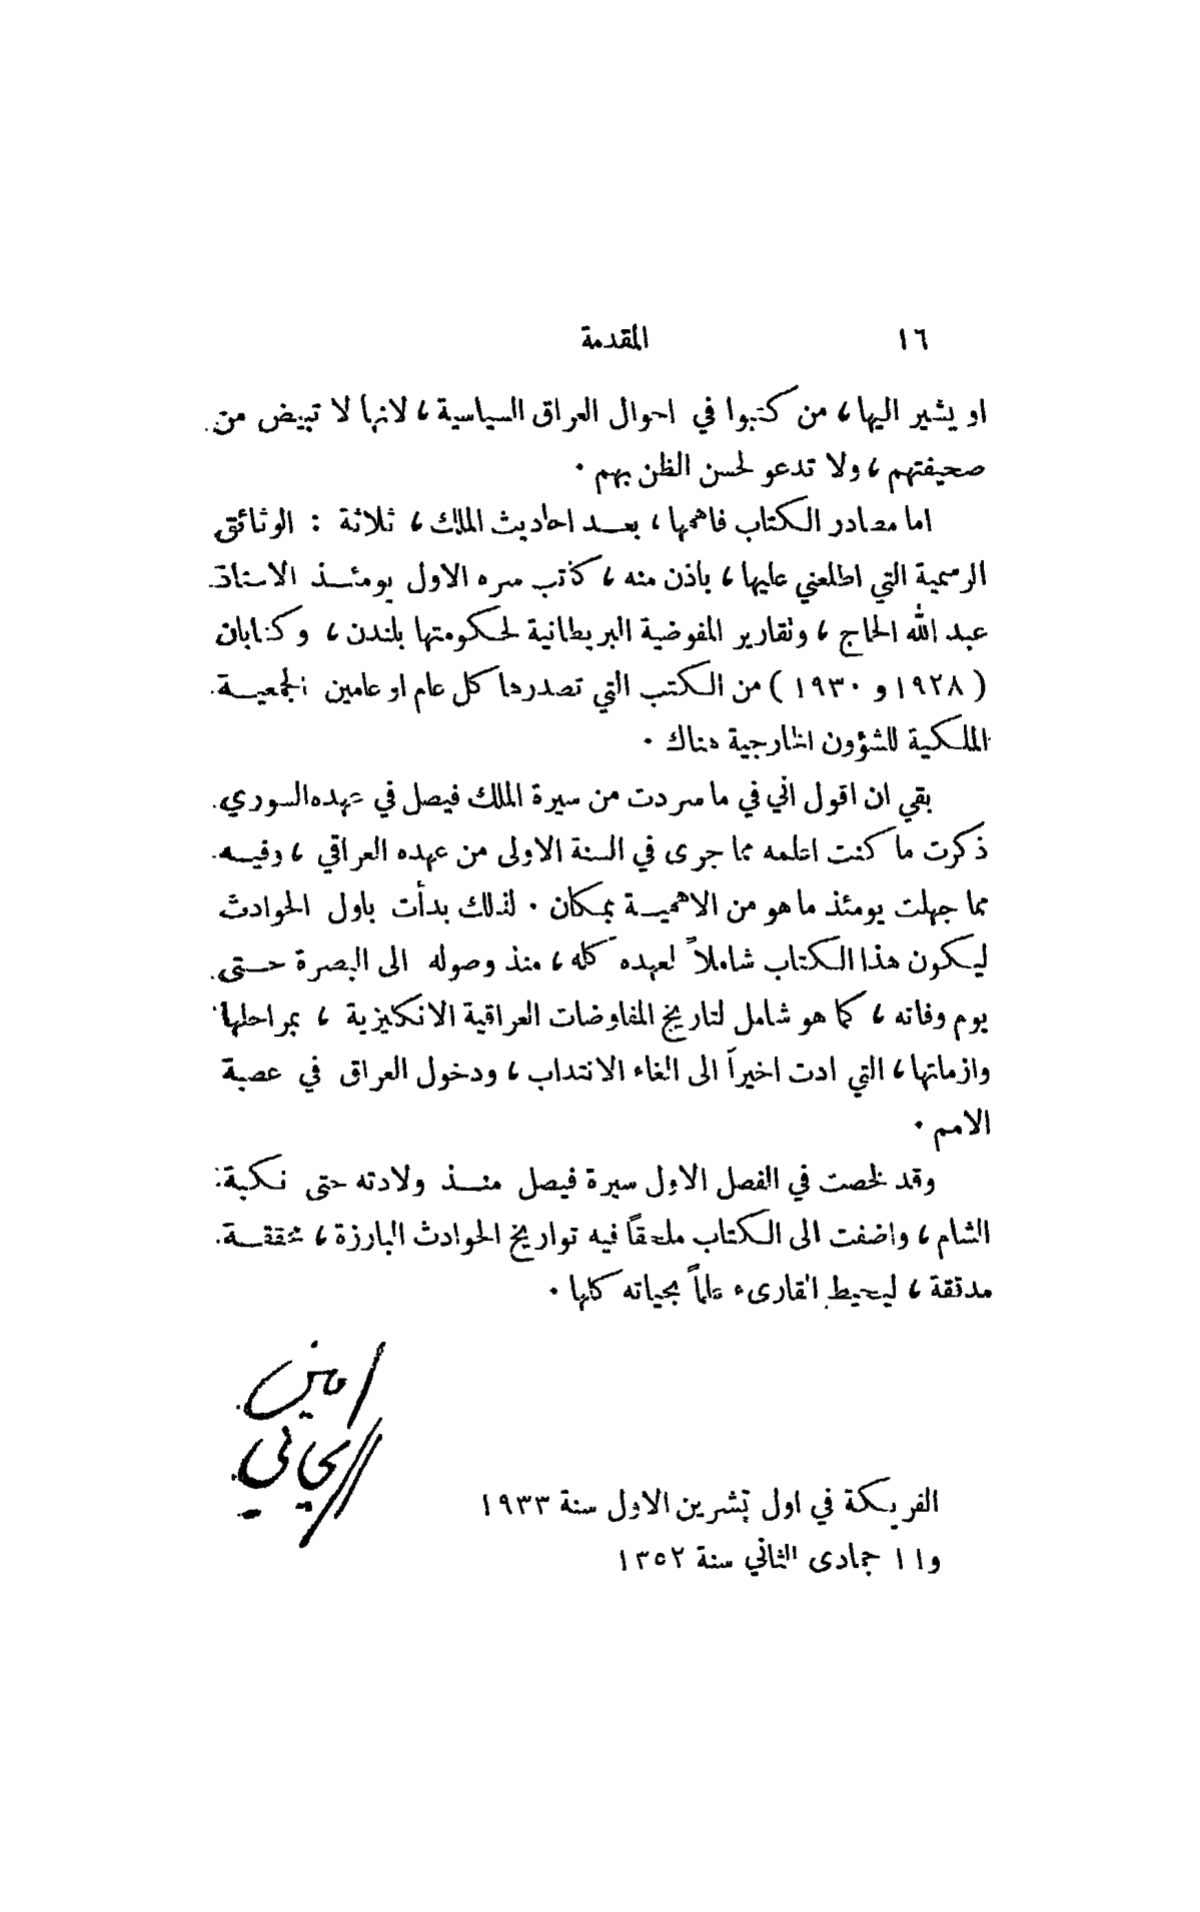 ١٦ المقدمة
او يشير اليها، من كتبوا في احوال العراق السياسية، لانها لا تبيض من
صحيفتهم، ولا تدعو لحسن الظن بهم.
اما مصادر الكتاب فاهمها، بعد احاديث الملك، ثلاثة : الوثائق
الرسمية التي اطلعني عليها، باذن منه، كاتب سره الاول يومئذ الاستاذ
عبد الله الحاج، وتقارير المفوضية البريطانية لحكومتها بلندن، وكتابان
( ١٩٢٨ و ١٩٣٠ ) من الكتب التي تصدرها كل عام او عامين الجمعية
الملكية للشؤون الخارجية هناك.
بقي ان اقول اني في ما سردت من سيرة الملك فيصل في عهده السوري
ذكرت ما كنت اعلمه مما جرى في السنة الاولى من عهده العراقي، وفيه
مما جهلت يومئذ ما هو من الاهمية بمكان. لذلك بدأت باول الحوادث
ليكون هذا الكتاب شاملاً لعهده كله، منذ وصوله الى البصرة حتى
يوم وفاته، كما هو شامل لتاريخ المفاوضات العراقية الانكليزية، بمراحلها
وازماتها، التي ادت اخيراً الى الغاء الانتداب، ودخول العراق في عصبة
الامم.
وقد لخصت في الفصل الاول سيرة فيصل منذ ولادته حتى نكبة
الشام، واضفت الى الكتاب ملحقاً فيه تواريخ الحوادث البارزة، محققة
مدققة، ليحيط القارىء علماً بحياته كلها.
امين
الريحاني
الفريكة في اول تشرين الاول سنة ١٩٣٣
و١١ جمادى الثاني سنة ١٣٥٢